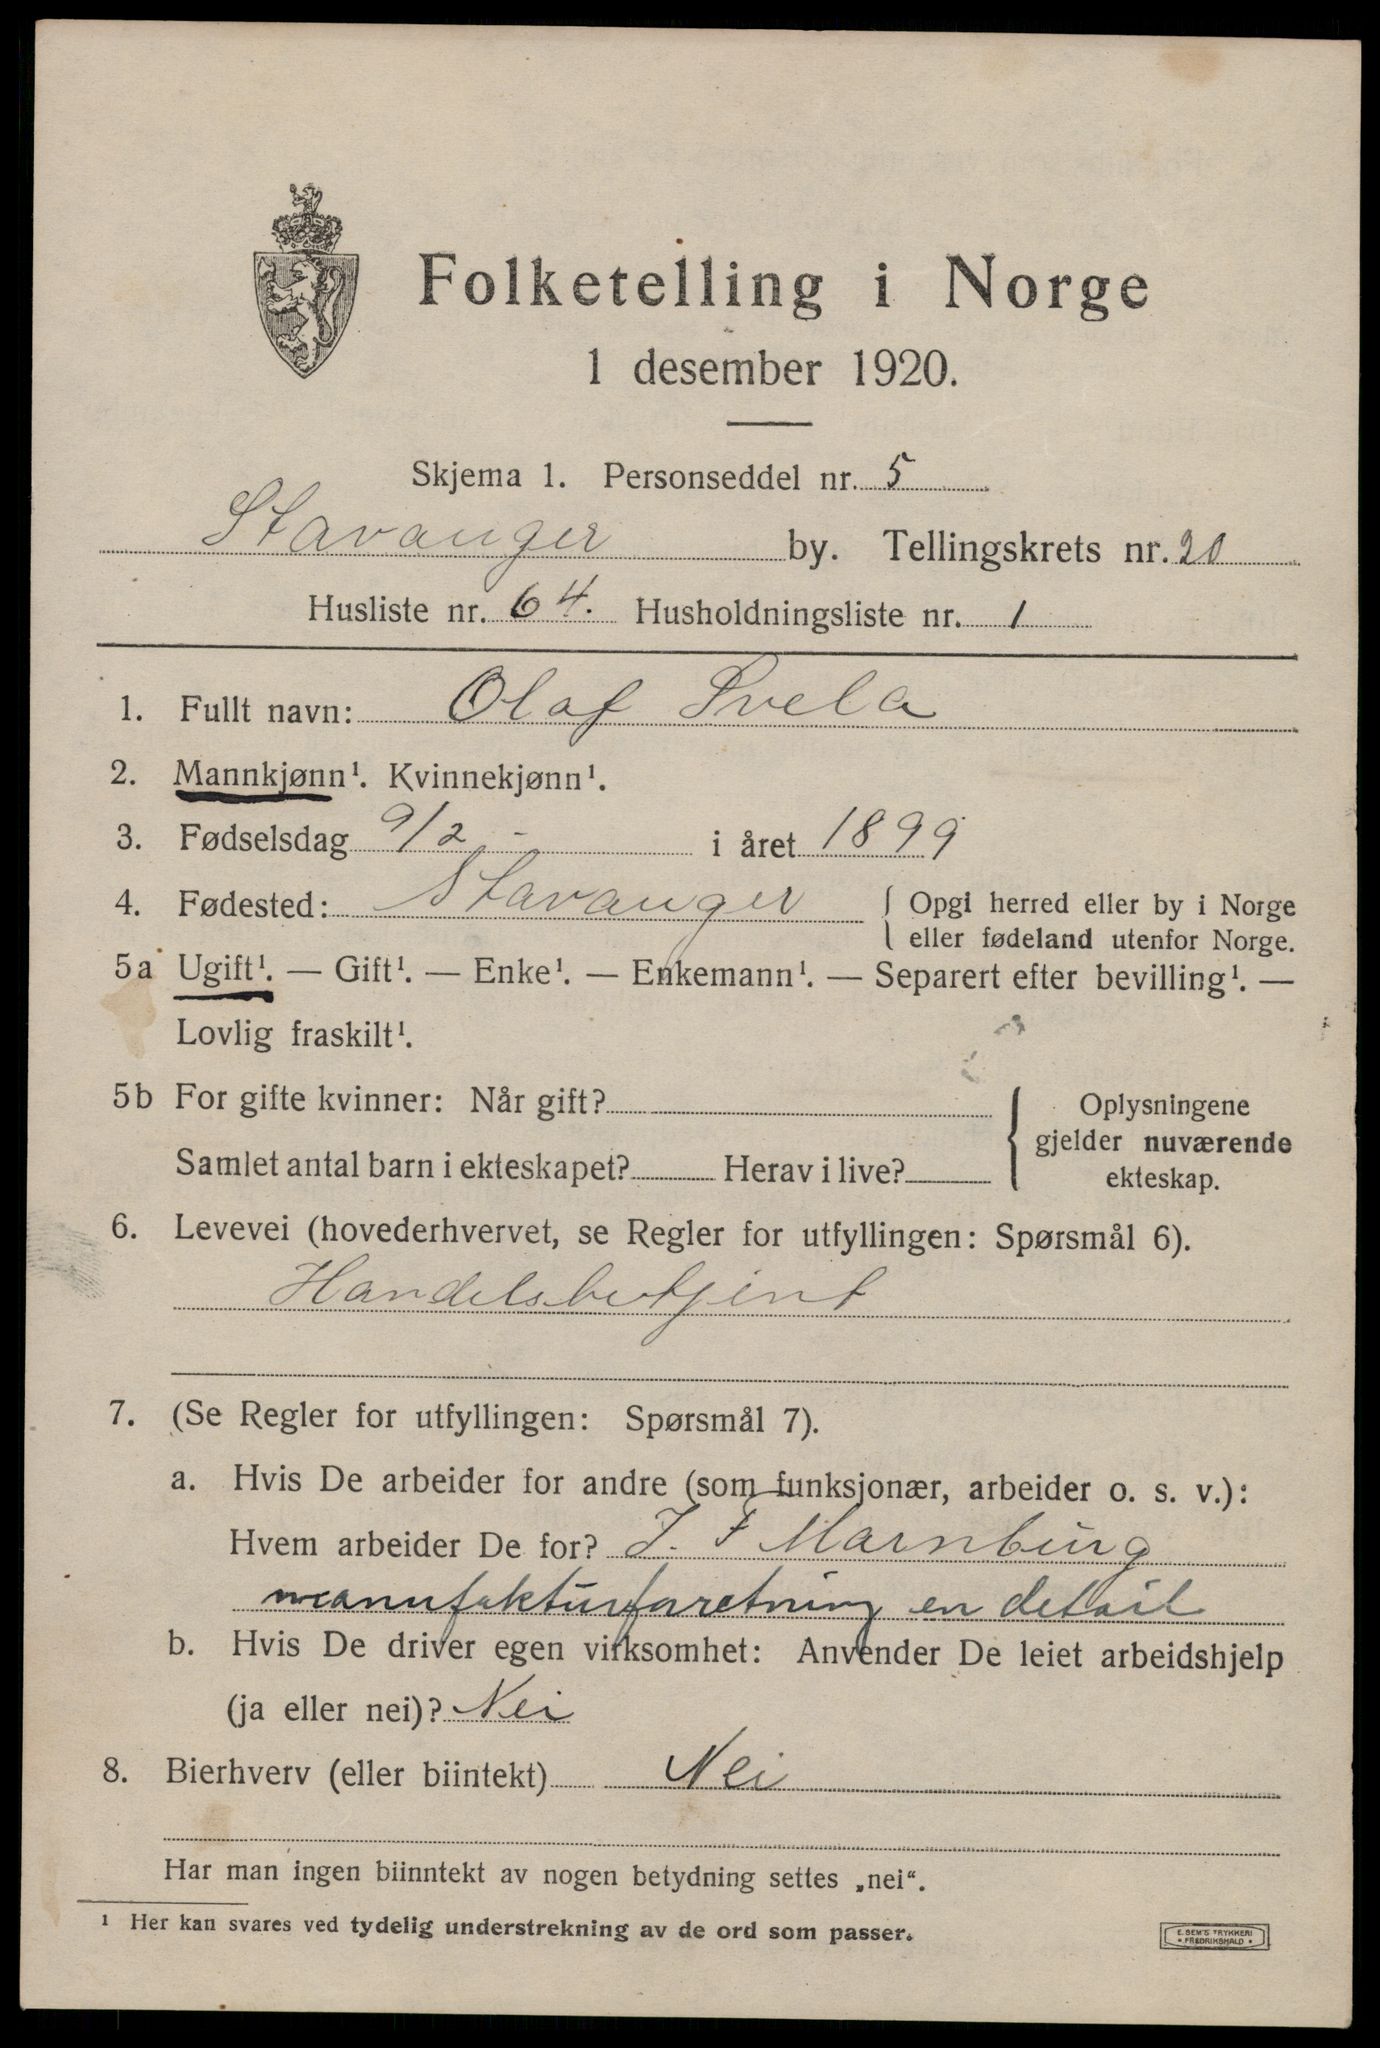 Folketelling i Norge
1 desember 1920.
Skjema 1. Personseddel nr. 5
Stavanger by. Tellingskrets nr. 20
Husliste nr. 64. Husholdningsliste nr. 1
1. Fullt navn: Olaf Svela
2. Mannkjønn¹. Kvinnekjønn¹.
3. Fødselsdag 9/2 - i året 1899
4. Fødested: Stavanger { Opgi herred eller by i Norge
eller fødeland utenfor Norge.
5a Ugift¹. — Gift¹. — Enke¹. — Enkemann¹. — Separert efter bevilling¹. —
Lovlig fraskilt¹.
5b For gifte kvinner: Når gift?
Samlet antal barn i ekteskapet? Herav i live?
{ Oplysningene
gjelder nuværende
ekteskap.
6. Levevei (hovederhvervet, se Regler for utfyllingen: Spørsmål 6).
Handelsbetjent
7. (Se Regler for utfyllingen: Spørsmål 7).
a. Hvis De arbeider for andre (som funksjonær, arbeider o. s. v.):
Hvem arbeider De for? J. F Marnburg
manufakturforretning en detail
b. Hvis De driver egen virksomhet: Anvender De leiet arbeidshjelp
(ja eller nei)? Nei
8. Bierhverv (eller biintekt) Nei
Har man ingen biinntekt av nogen betydning settes „nei“.
¹ Her kan svares ved tydelig understrekning av de ord som passer.
E. SEM'S TRYKKERI
• FREDRIKSHALD •